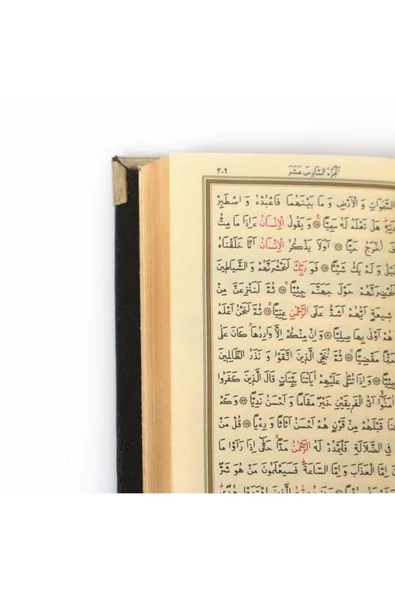 ٣٠٩
الجزء السادس عشر
السَّمٰوَاتِ وَ الْاَرْضِ وَ مَا بَيْنَهُمَا فَاعْبُدْهُ وَ اصْطَبِرْ
هَلْ تَعْلَمُ لَهُ سَمِيًّا وَ يَقُولُ الْاِنْسَانُ ءَاِذَا مَا مِتُّ
اُخْرَجُ حَيًّا اَوَلَا يَذْكُرُ الْاِنْسَانُ اَنَّا خَلَقْنَاهُ
قَبْلُ وَ لَمْ يَكُ شَيْئًا فَوَ رَبِّكَ لَنَحْشُرَنَّهُمْ وَ الشَّيَاطِينَ
لَنُحْضِرَنَّهُمْ حَوْلَ جَهَنَّمَ جِثِيًّا ثُمَّ لَنَنْزِعَنَّ مِنْ
شِيعَةٍ اَيُّهُمْ اَشَدُّ عَلَى الرَّحْمٰنِ عِتِيًّا ثُمَّ لَنَحْنُ اَعْلَمُ
هُمْ اَوْلٰى بِهَا صِلِيًّا وَ اِنْ مِنْكُمْ اِلَّا وَارِدُهَا كَانَ عَلٰى
حَتْمًا مَقْضِيًّا ثُمَّ نُنَجِّي الَّذِينَ اتَّقَوْا وَ نَذَرُ الظَّالِمِينَ
جِثِيًّا وَ اِذَا تُتْلٰى عَلَيْهِمْ اٰيَاتُنَا بَيِّنَاتٍ قَالَ الَّذِينَ كَفَرُوا
اٰمَنُوا اَيُّ الْفَرِيقَيْنِ خَيْرٌ مَقَامًا وَ اَحْسَنُ نَدِيًّا وَ كَمْ
قَبْلَهُمْ مِنْ قَرْنٍ هُمْ اَحْسَنُ اَثَاثًا وَ رِءْيًا قُلْ مَنْ
فِي الضَّلَالَةِ فَلْيَمْدُدْ لَهُ الرَّحْمٰنُ مَدًّا حَتّٰى اِذَا رَاَوْا مَا
اِمَّا الْعَذَابَ وَ اِمَّا السَّاعَةَ فَسَيَعْلَمُونَ مَنْ هُوَ شَرٌّ
الَّذِينَ اهْتَدَوْا هُدًى